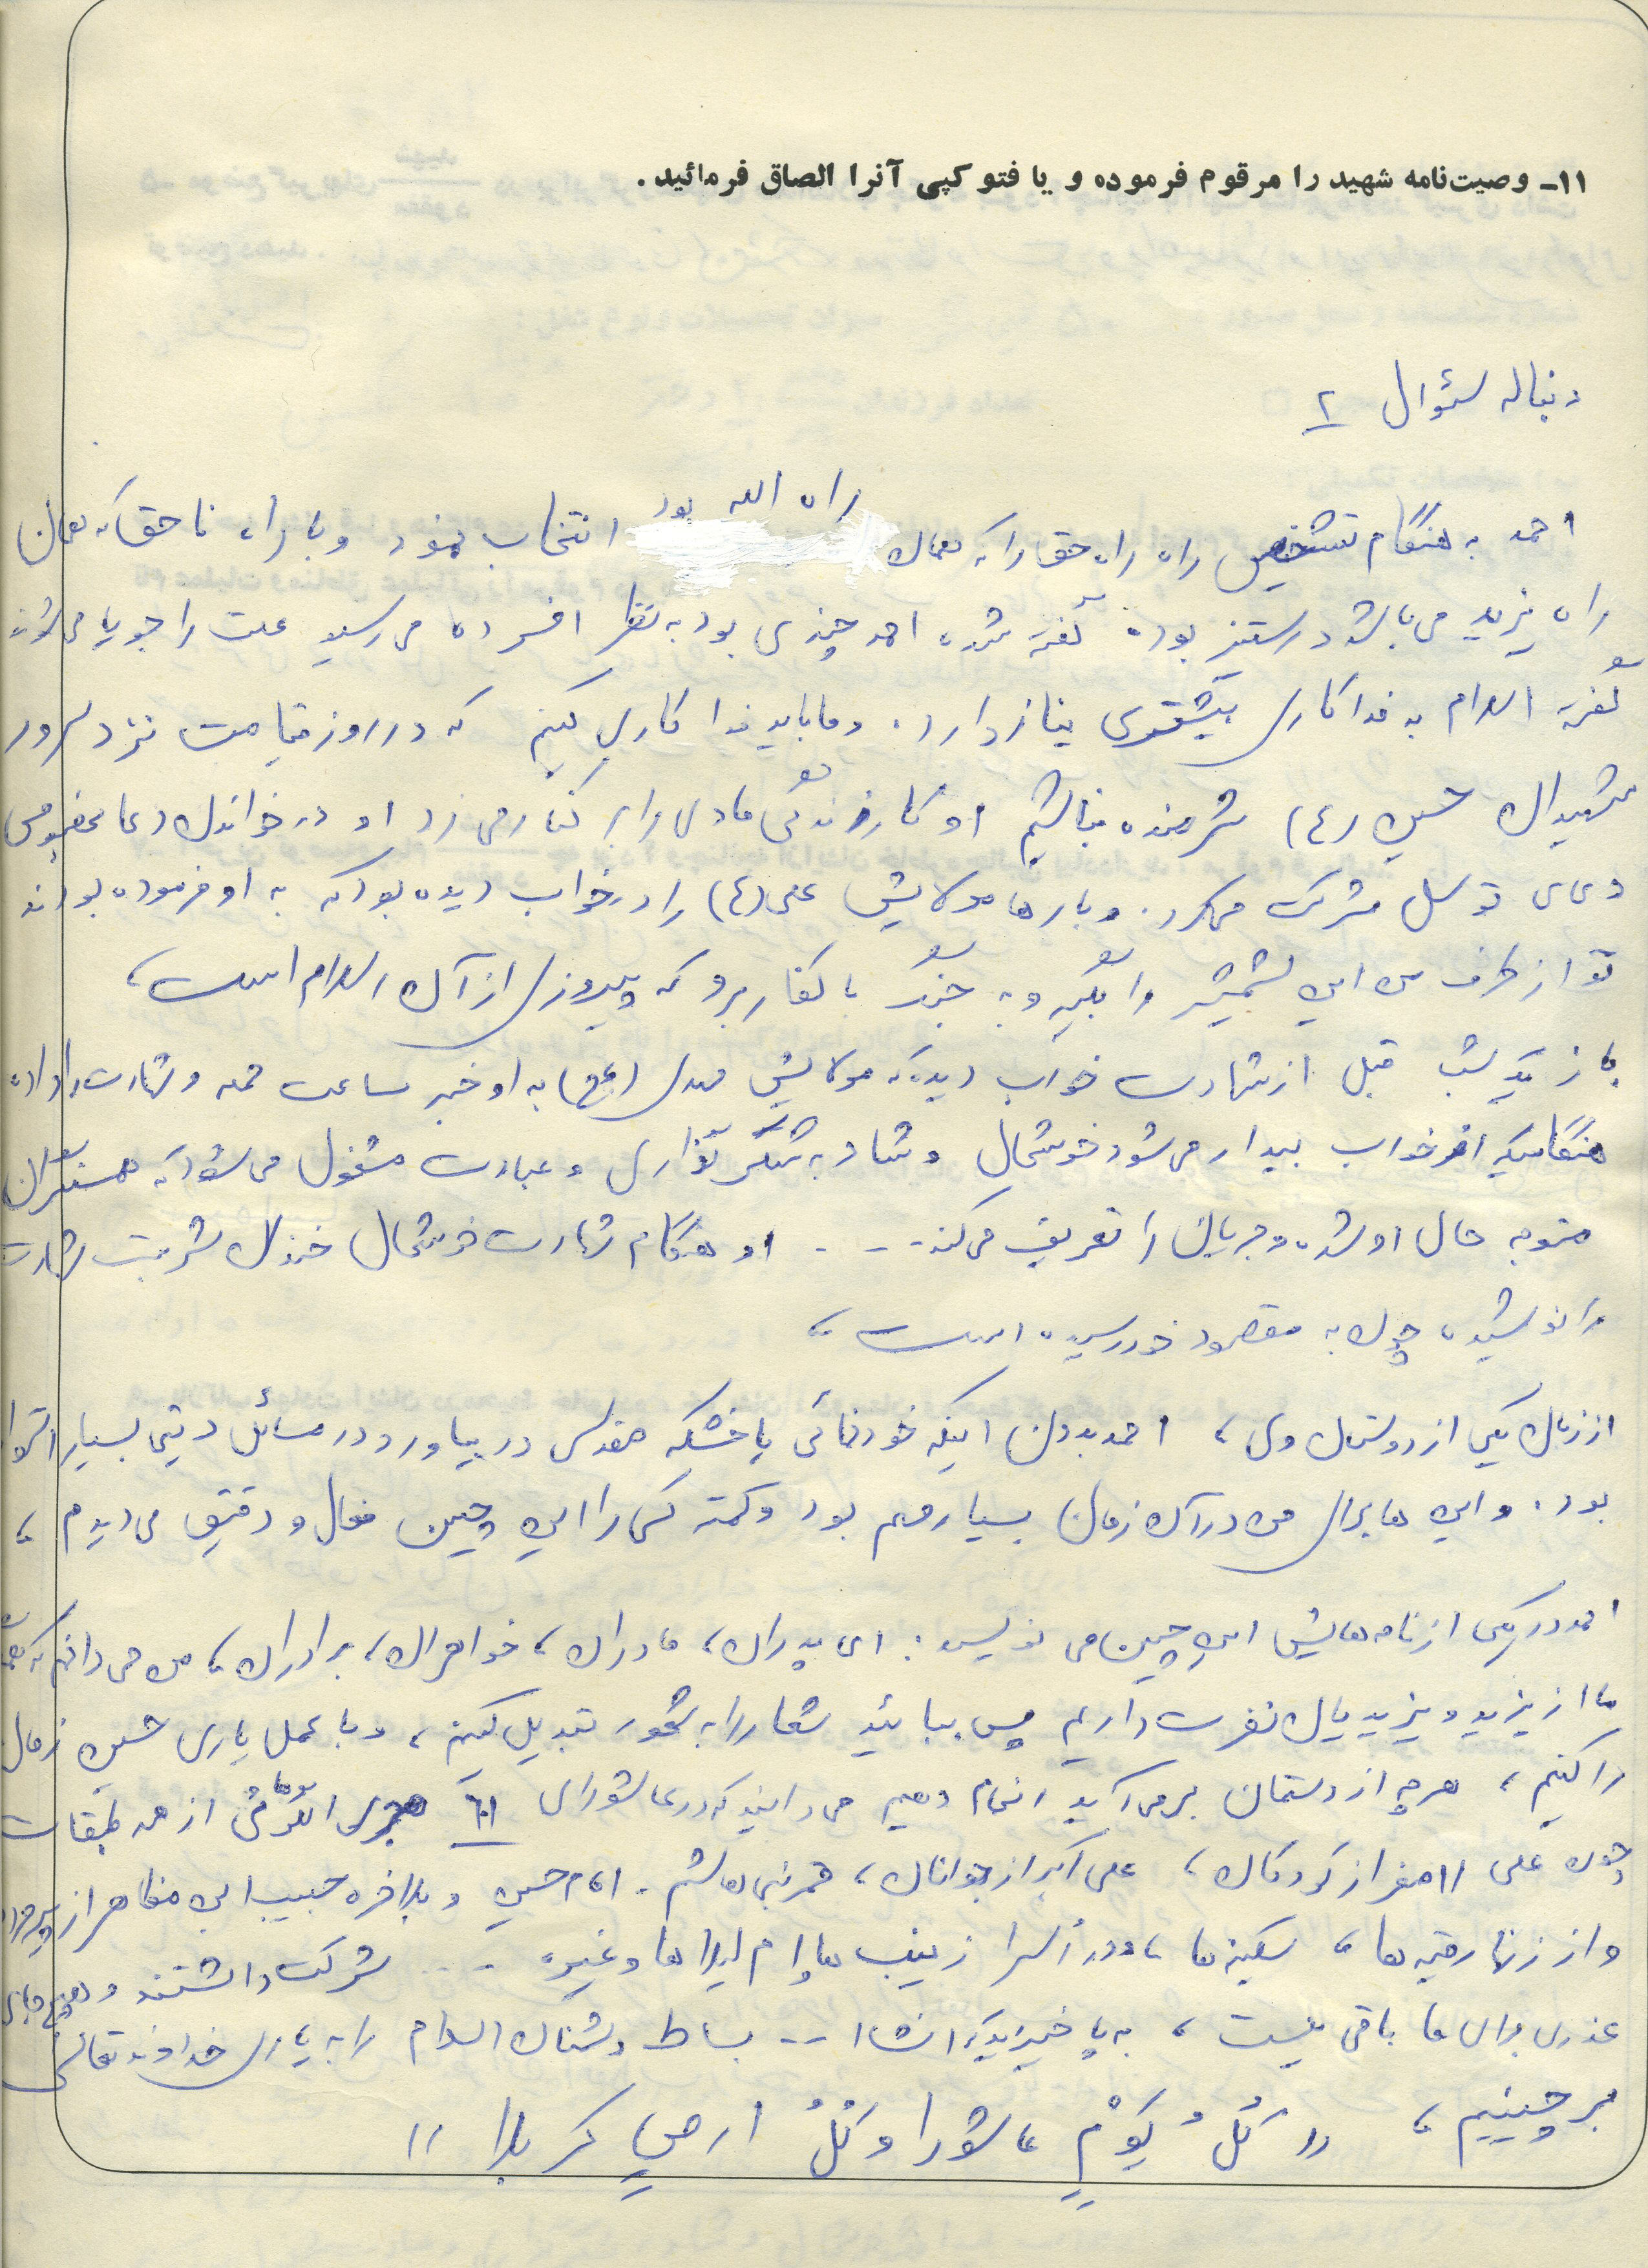 ۱۱ـ وصیت‌نامه شهید را مرقوم فرموده و یا فتوکپی آنرا الصاق فرمائید.
دنباله سئوال ۲
احمد به هنگام تشخیص راه راه حق را که همان راه الله بود انتخاب نمود و با راه ناحق که همان
راه یزید می باشد در ستیز بود. گفته شده احمد چندی بود به نظر افسرده می رسید علت را جویا می شوند
گفته اسلام به فداکاری بیشتری نیاز دارد. و ما باید فداکاری کنیم که در روز قیامت نزد سرور
شهیدان حسین (ع) شرمنده نباشیم او کار زندگی مادی را بر کنار می زد او در خواندن دعا مخصوصا
دعای توسل شرکت میکرد. و بارها مولایش علی (ع) را در خواب دیده بود که به او فرموده بودند
تو از طرف من این شمشیر را بگیر و به جنگ با کفار برو که پیروزی از آن اسلام است،
باز یک شب قبل از شهادت خواب دیده که مولایش مهدی (عج) به او خبر ساعت حمله و شهادت را داده
هنگامیکه از خواب بیدار می شود خوشحال و شاد به شکرگزاری و عبادت مشغول می شود که همسنگران
متوجه حال او شده و جریان را تعریف می کند - - - او هنگام شهادت خوشحال خندان شربت شهادت
را نوشید، چون به مقصود خود رسیده است،
از زبان یکی از دوستان وی، احمد بدون اینکه خودنمائی یا خشکه مقدسی در بیاورد در مسائل دینی بسیار استوار
بود. و این ها برای من در آن زمان بسیار مهم بود و کمتر کسی را این چنین فعال و دقیق می دیدم،
احمد در یکی از نامه هایش این چنین می نویسد: ای پدران، مادران، خواهران، برادران، من می دانم که همه
ما از یزید و یزیدیان نفرت داریم پس بیائید شعار را به شعور تبدیل کنیم، و با عمل یاری حسین زمان
را کنیم، هرچه از دستمان بر می آید انجام دهیم می دانید که در عاشورای ۶۱ هجری الگوهائی از همه طبقات
چون علی اصغر از کودکان، علی اکبر از جوانان، قمر بنی هاشم. امام حسین و بلاخره حبیب ابن مظاهر از پیرمردان
و از زنها رقیه ها، سکینه ها، زینب ها و ام لیلا ها و غیره - - - شرکت داشتند و هیچ جای
عذری برای ما باقی نیست، به پا خیزید که انشاا -- بساط دشمنان اسلام را به یاری خداوند تعالی
برچینیم، « کُلُ یَوْمٍ عاشورا و کُلُ ارضٍ کربلا »